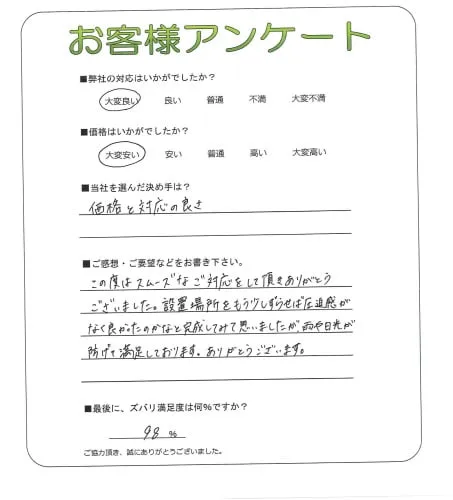 お客様アンケート
■弊社の対応はいかがでしたか？
大変良い 良い 普通 不満 大変不満
■価格はいかがでしたか？
大変安い 安い 普通 高い 大変高い
■当社を選んだ決め手は？
価格と対応の良さ
■ご感想・ご要望などをお書き下さい。
この度はスムーズなご対応をして頂きありがとう
ございました。設置場所をもう少しずらせば圧迫感が
なく良かったのかなと完成してみて思いましたが、雨や日光が
防げて満足しております。ありがとうございます。
■最後に、ズバリ満足度は何％ですか？
98 %
ご協力頂き、誠にありがとうございました。